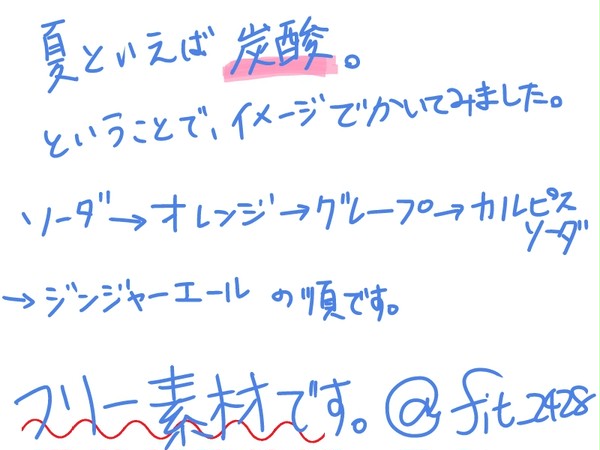 夏といえば炭酸。
ということで、イメージでかいてみました。
ソーダ→オレンジ→グレープ→カルピスソーダ
→ジンジャーエール の順です。
フリー素材です。@fit_2428